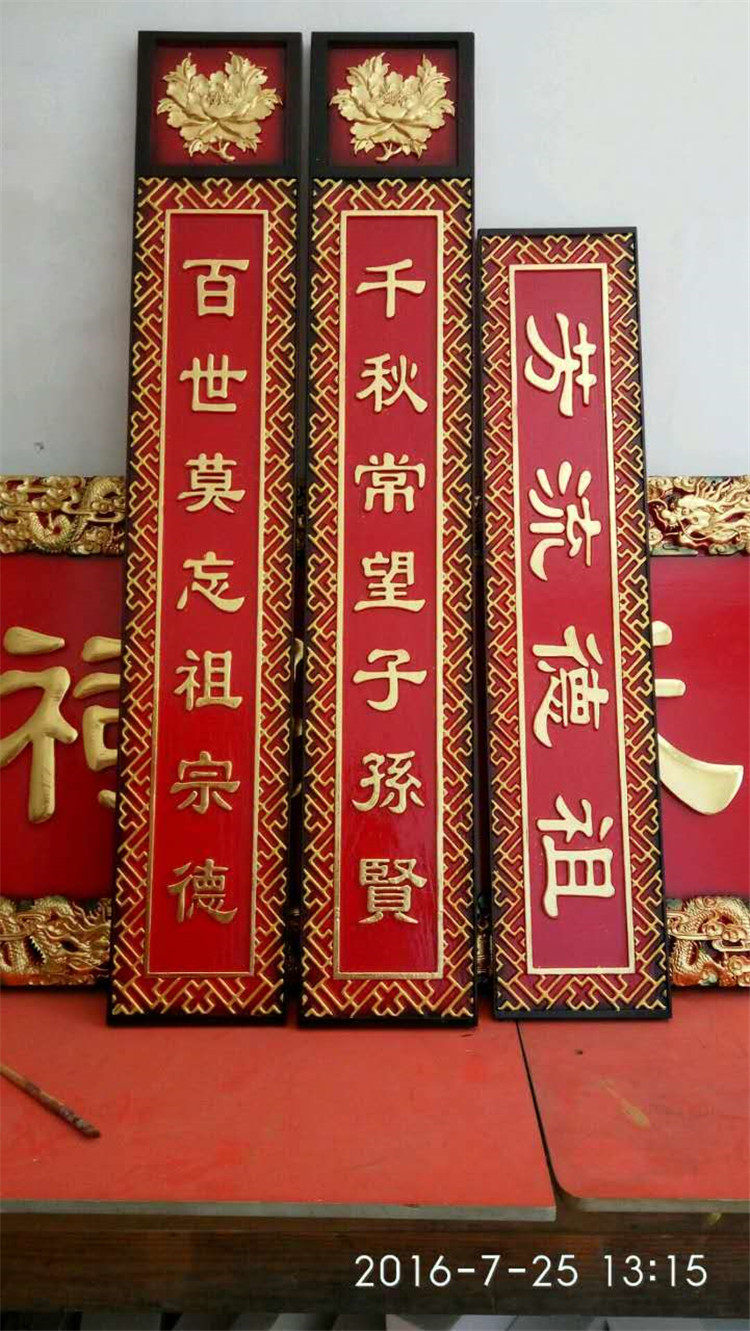 百世莫忘祖宗德
千秋常望子孫賢
祖德流芳
祠
2016-7-25 13:15